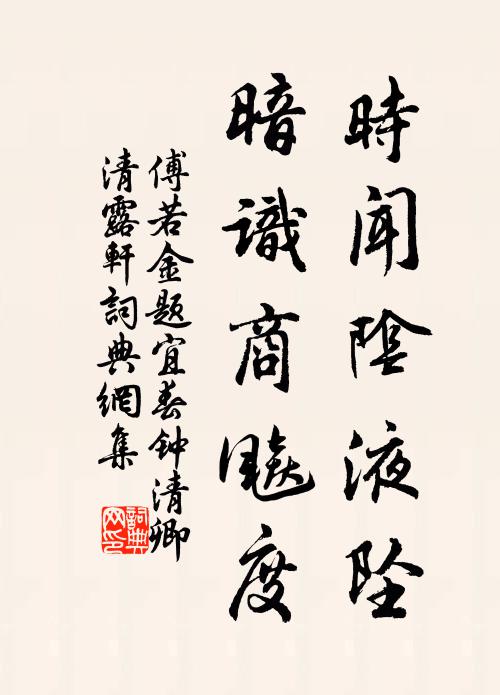 時聞陰液墜
暗識商飈度
傅若金题宜春钟清卿
清露軒詞典網集
詞典网印